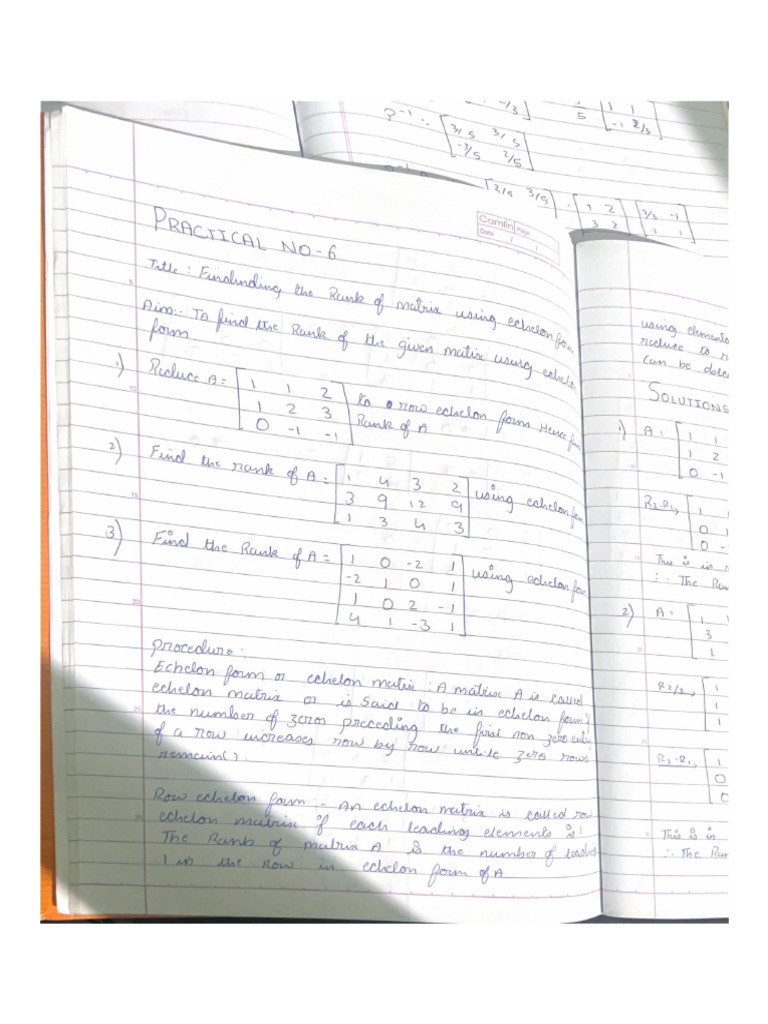 3/5 3/5
-3/5 2/5
2/5 3/5
1 2
3 2
2/3 -1
1 1
5
1 1
-1 2/3
Camlin Page
Date / /
PRACTICAL NO-6
Title : Findinding the Rank of matrix using echelon form
Aim:- To find the Rank of the given matix using echelon
form
1) Reduce A = [1 1 2 to row echelon form Hence find
1 2 3 Rank of A
0 -1 -1]
2) Find the rank of A = [1 4 3 2 using echelon form
3 9 12 9
1 3 4 3]
3) Find the Rank of A = [1 0 -2 1 using echelon form
-2 1 0 1
1 0 2 -1
4 1 -3 1]
procedure:
Echelon form or echelon matrix : A matrix A is called
echelon matrix or is said to be in echelon form if
the number of zeros preceding the first non zero entry
of a row increases row by row until zero rows
remain().
Row echelon form :- An echelon matrix is called row
echelon matrix if each leading elements is 1
The Rank of matrix A is the number of leading
1 in the Row in echelon form of A
using elementa
reduce to r
can be dete
SOLUTIONS
1) A = [1 1
1 2
0 -1
R2-R1, [1 1
0 1
0 -
This is in r
∴ The Ran
2) A = [1
3
1
R2/3, [1
1
1
R2-R1, [1
0
0
This is in
∴ The Ran